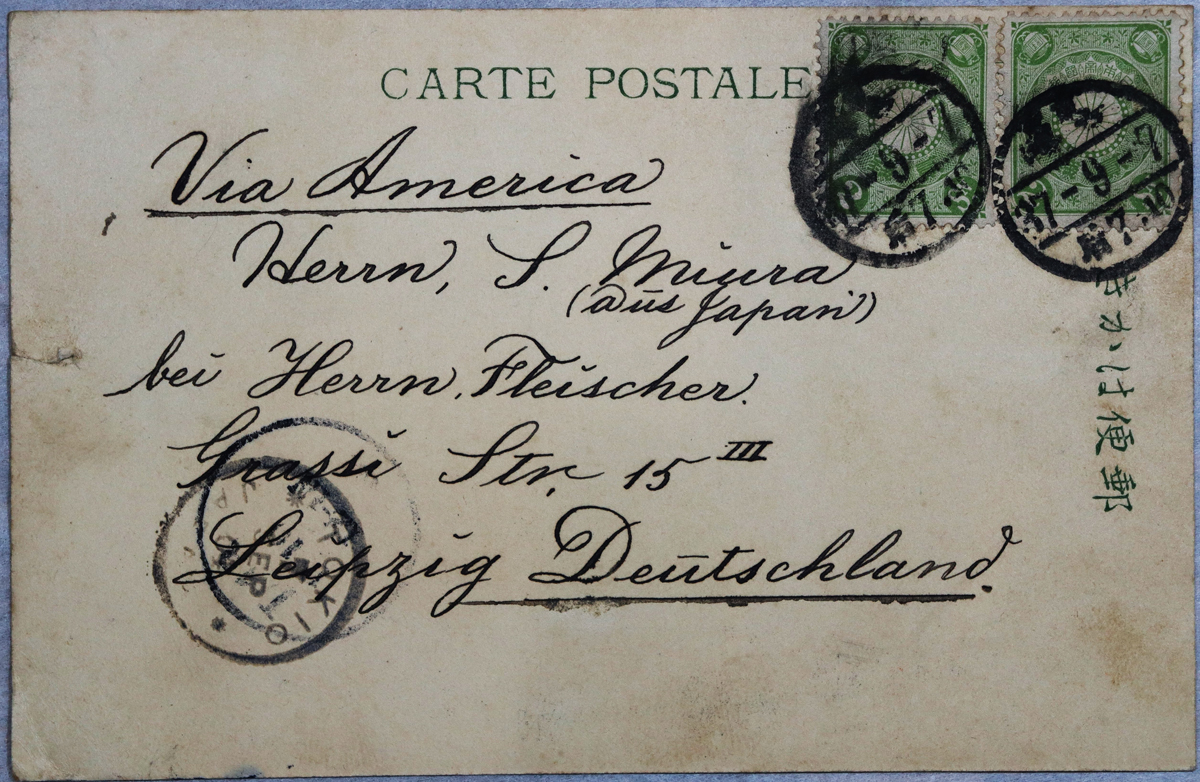 CARTE POSTALE
Via America
Herrn, S. Miura
(aus Japan)
bei Herrn. Fleischer.
Grassi Str. 15 III
Leipzig Deutschland.
37-9-7
前7-10
郵便はかき
TOKYO
SEPT